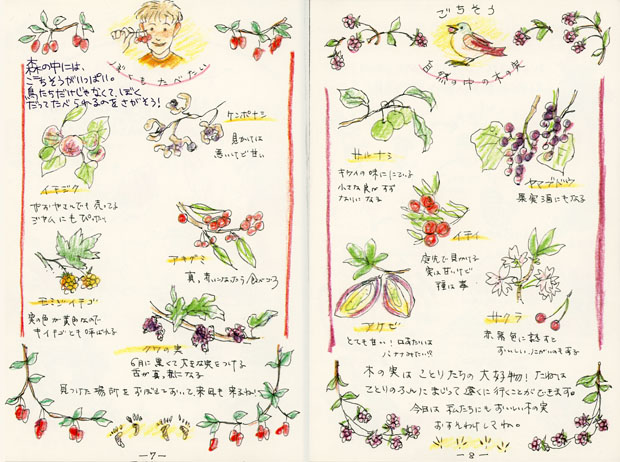 ぼくもたべたい
森の中には、
ごちそうがいっぱい。
鳥たちだけじゃなくて、ぼく
だってたべられるのをさがそう!
ケンポナシ
見かけは
悪いけど甘い
イチジク
ジャムにもぴったり
アキグミ
真っ赤になったら食べごろ
モミジイチゴ
実の色が黄色なので
キイチゴとも呼ばれる
クワの実
6月に黒くて大きな実をつける
舌が真っ黒になる
見つけた場所をおぼえておいて、来年も来るねっ
-7-
ごちそう
自然の中の木の実
サルナシ
キウイの味ににている
小さな実がすず
なりになる
ヤマブドウ
果実酒にもなる
イチイ
庭先で見かける
実は甘いけど
種は毒
アケビ
とても甘い!口あたりは
バナナみたい!?
サクラ
赤紫色に熟すと
おいしい。にがいのもある
木の実はことりたちの大好物!たねは
ことりのふんにまじって遠くに行くことができます。
今日は私たちにもおいしい木の実
おすそわけしてね。
-8-